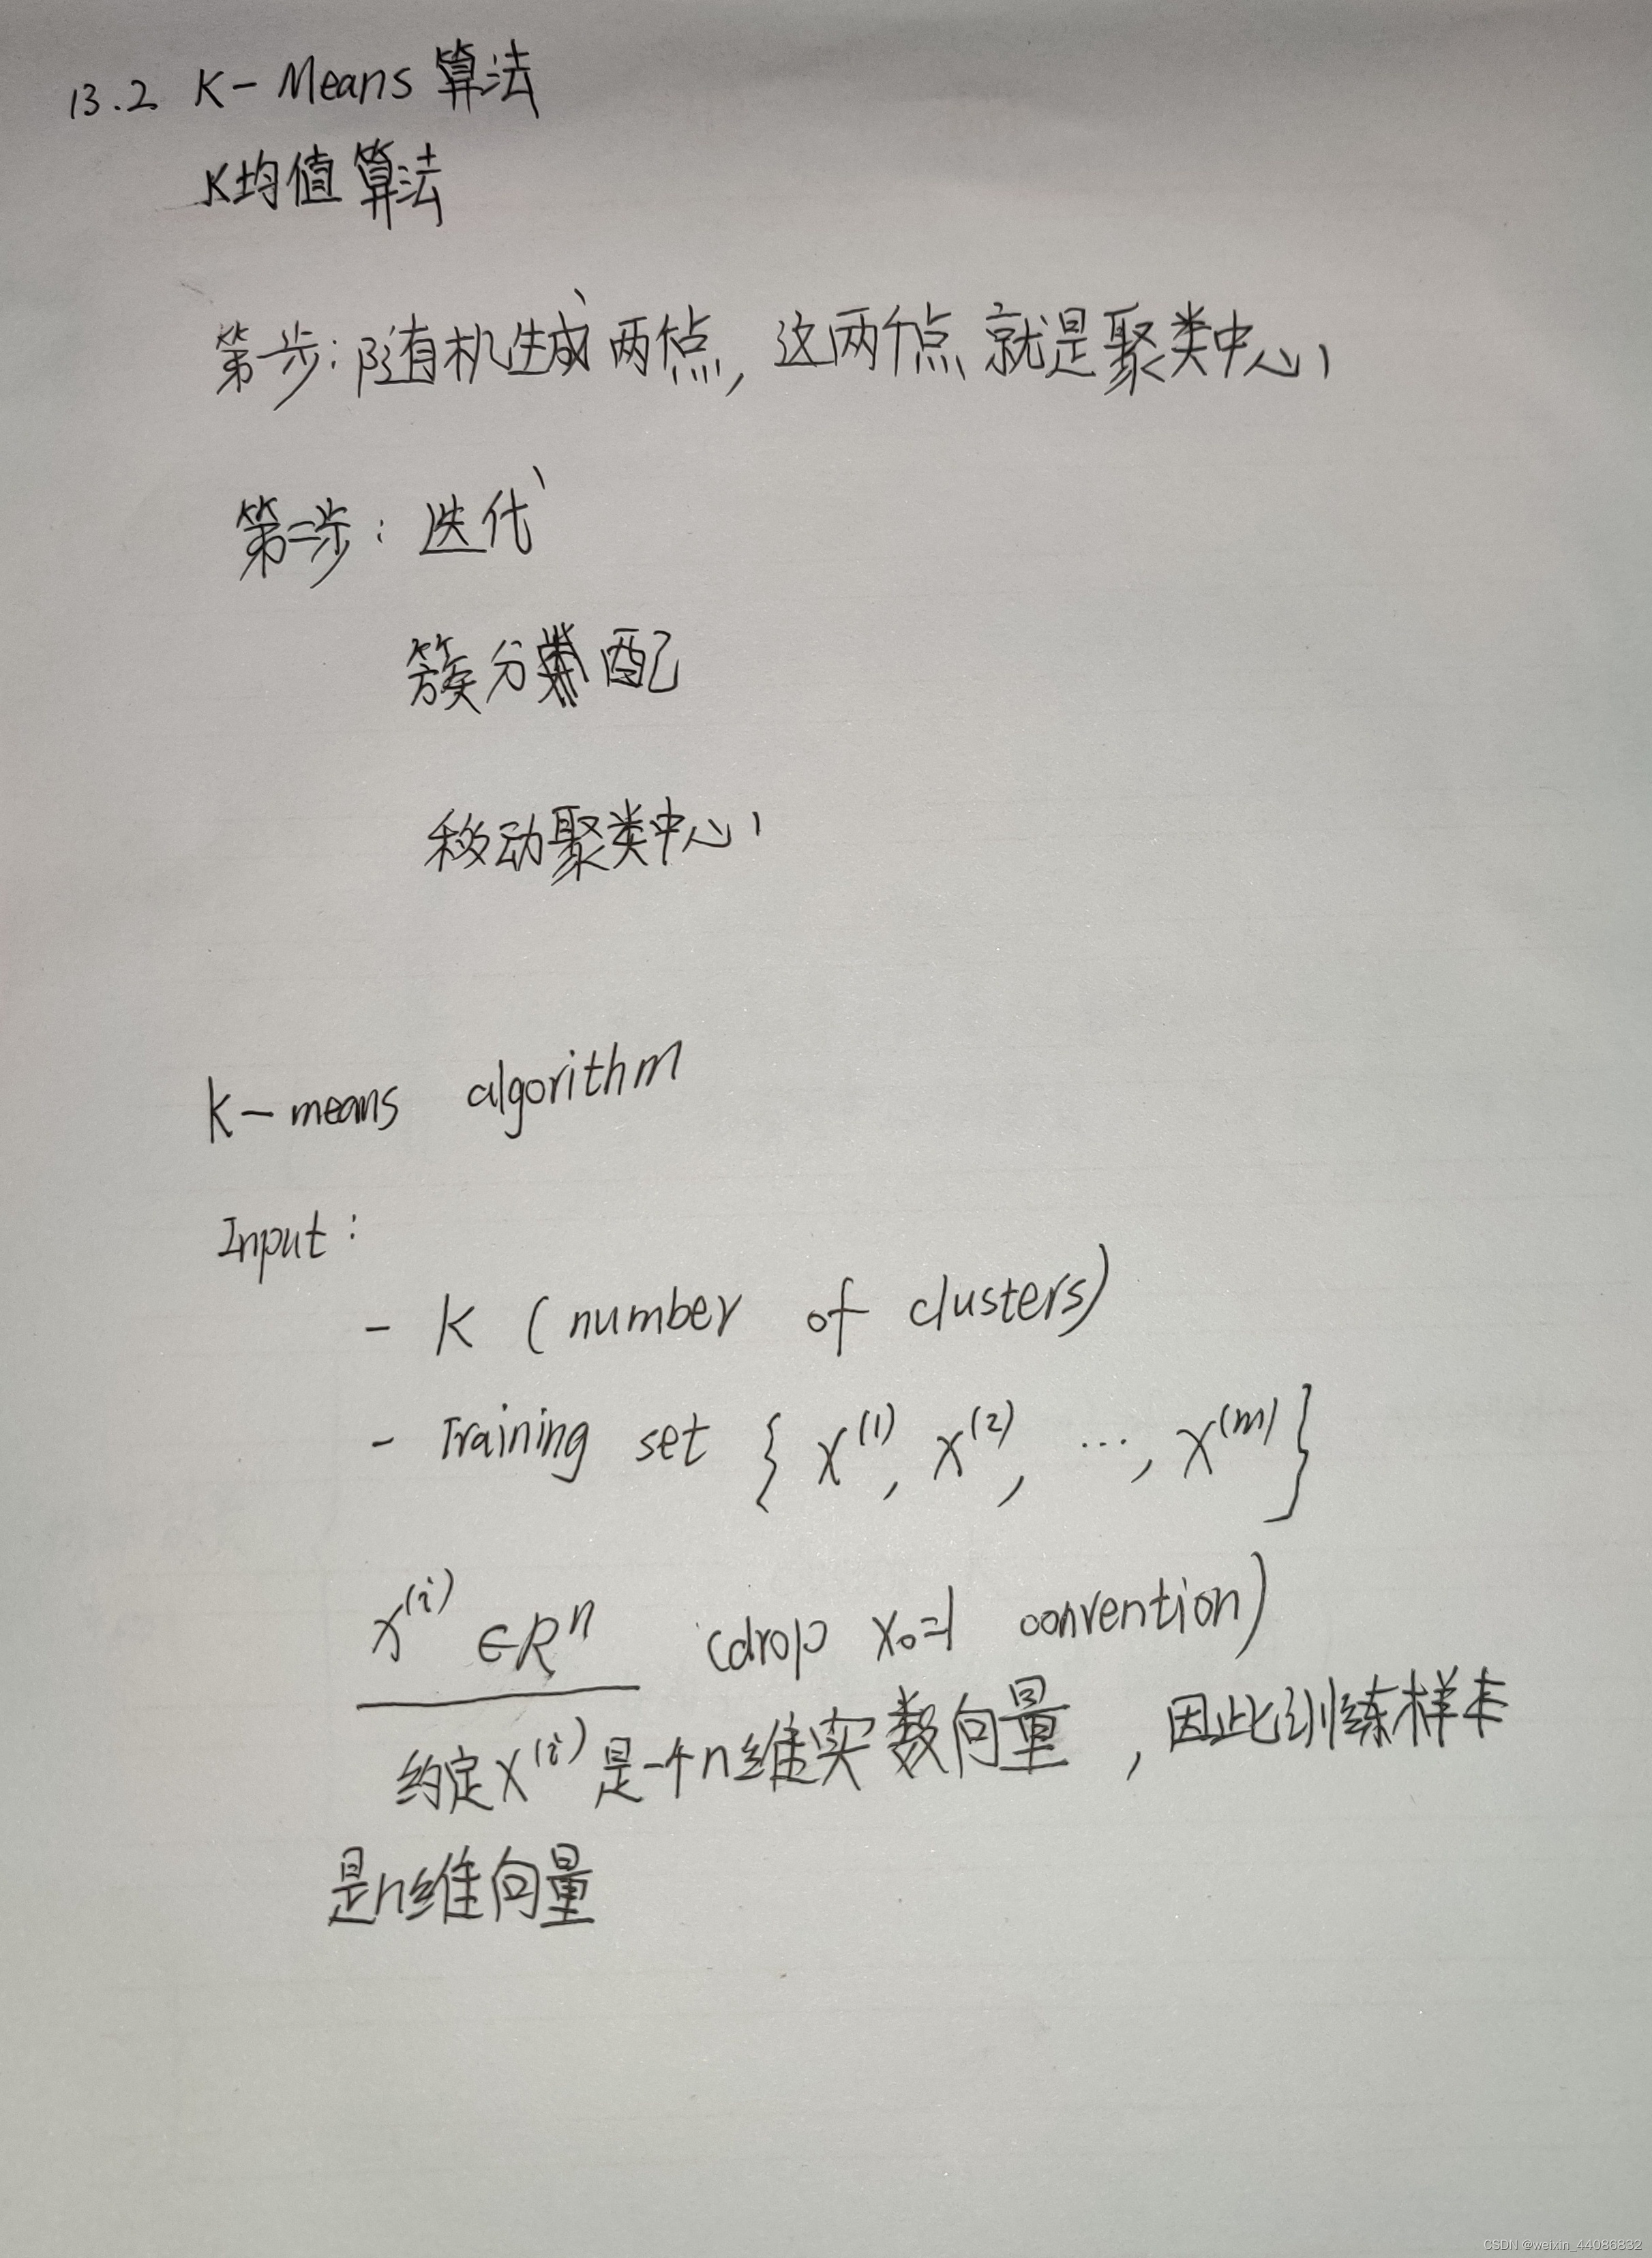 13.2 K-Means 算法
K均值算法
第一步:随机生成两个点,这两个点就是聚类中心
第二步:迭代
簇分配
移动聚类中心
K-means algorithm
Input:
- K (number of clusters)
- Training set { x^(1), x^(2), ..., x^(m) }
x^(i) ∈R^n (drop x₀=1 convention)
约定x^(i)是一个n维实数向量,因此训练样本
是n维向量
CSDN @weixin_44086832